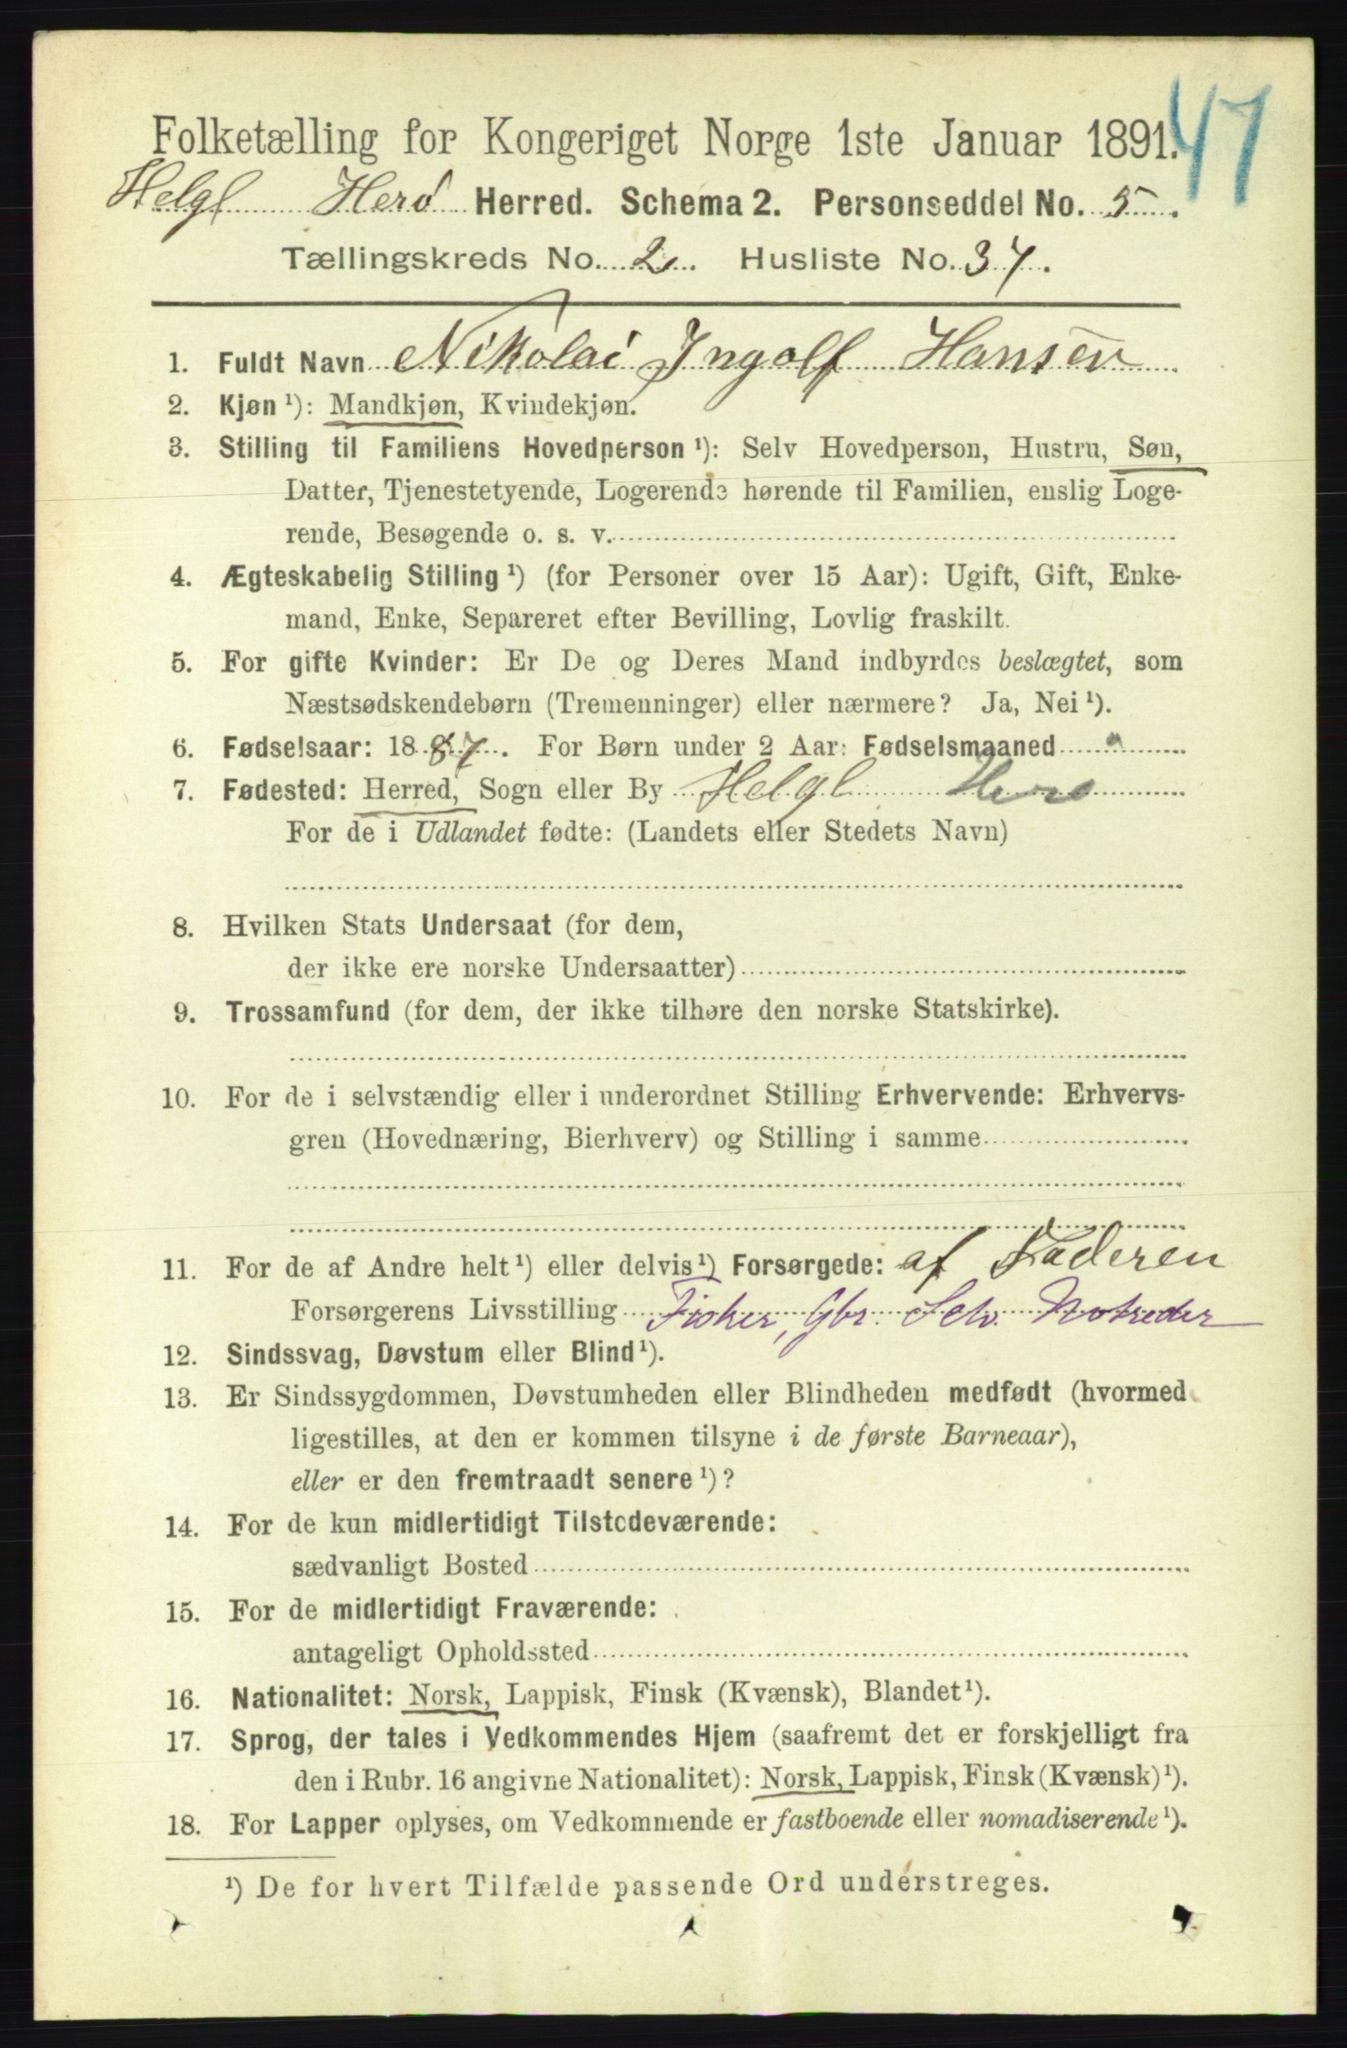 47
Folketælling for Kongeriget Norge 1ste Januar 1891.
Helgl Herö Herred. Schema 2. Personseddel No. 5.
Tællingskreds No. 2. Husliste No. 37.
1. Fuldt Navn Nikolai Ingolf Hansen
2. Kjøn ¹): Mandkjøn, Kvindekjøn.
3. Stilling til Familiens Hovedperson ¹): Selv Hovedperson, Hustru, Søn,
Datter, Tjenestetyende, Logerende hørende til Familien, enslig Loge-
rende, Besøgende o. s. v.
4. Ægteskabelig Stilling ¹) (for Personer over 15 Aar): Ugift, Gift, Enke-
mand, Enke, Separeret efter Bevilling, Lovlig fraskilt.
5. For gifte Kvinder: Er De og Deres Mand indbyrdes beslægtet, som
Næstsødskendebørn (Tremenninger) eller nærmere? Ja, Nei ¹).
6. Fødselsaar: 1887. For Børn under 2 Aar: Fødselsmaaned
7. Fødested: Herred, Sogn eller By Helgl Herö
For de i Udlandet fødte: (Landets eller Stedets Navn)
8. Hvilken Stats Undersaat (for dem,
der ikke ere norske Undersaatter)
9. Trossamfund (for dem, der ikke tilhøre den norske Statskirke).
10. For de i selvstændig eller i underordnet Stilling Erhvervende: Erhvervs-
gren (Hovednæring, Bierhverv) og Stilling i samme
11. For de af Andre helt ¹) eller delvis ¹) Forsørgede: af Faderen
Forsørgerens Livsstilling Fisker, Gbr. Selv. Notreder
12. Sindssvag, Døvstum eller Blind ¹).
13. Er Sindssygdommen, Døvstumheden eller Blindheden medfødt (hvormed
ligestilles, at den er kommen tilsyne i de første Barneaar),
eller er den fremtraadt senere ¹)?
14. For de kun midlertidigt Tilstedeværende:
sædvanligt Bosted
15. For de midlertidigt Fraværende:
antageligt Opholdssted
16. Nationalitet: Norsk, Lappisk, Finsk (Kvænsk), Blandet ¹).
17. Sprog, der tales i Vedkommendes Hjem (saafremt det er forskjelligt fra
den i Rubr. 16 angivne Nationalitet): Norsk, Lappisk, Finsk (Kvænsk) ¹).
18. For Lapper oplyses, om Vedkommende er fastboende eller nomadiserende ¹).
¹) De for hvert Tilfælde passende Ord understreges.